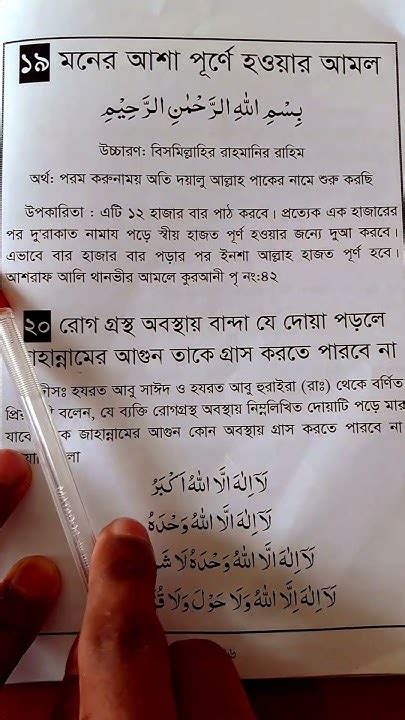 ১৯ মনের আশা পূর্ণে হওয়ার আমল
بِسْمِ اللهِ الرَّحْمٰنِ الرَّحِيْمِ
উচ্চারণ: বিসমিল্লাহির রাহমানির রাহিম
অর্থ: পরম করুনাময় অতি দয়ালু আল্লাহ পাকের নামে শুরু করছি
উপকারিতা : এটি ১২ হাজার বার পাঠ করবে। প্রত্যেক এক হাজারের
পর দু'রাকাত নামায পড়ে স্বীয় হাজত পূর্ণ হওয়ার জন্যে দুআ করবে।
এভাবে বার হাজার বার পড়ার পর ইনশা আল্লাহ হাজত পূর্ণ হবে।
আশরাফ আলি থানভীর আমলে কুরআনী পৃ নং:৪২
২০ রোগ গ্রস্থ অবস্থায় বান্দা যে দোয়া পড়লে
জাহান্নামের আগুন তাকে গ্রাস করতে পারবে না
হযরত আবু সাঈদ ও হযরত আবু হুরাইরা (রাঃ) থেকে বর্ণিত
বলেন, যে ব্যক্তি রোগগ্রস্থ অবস্থায় নিম্নলিখিত দোয়াটি পড়ে মারা
যাবে জাহান্নামের আগুন কোন অবস্থায় গ্রাস করতে পারবে না
لَاۤ اِلٰهَ اِلَّا اللهُ اَكْبَرُ
لَاۤ اِلٰهَ اِلَّا اللهُ وَحْدَهُ
لَاۤ اِلٰهَ اِلَّا اللهُ وَحْدَهُ لَا
لَاۤ اِلٰهَ اِلَّا اللهُ وَلَا حَوْلَ وَلَا